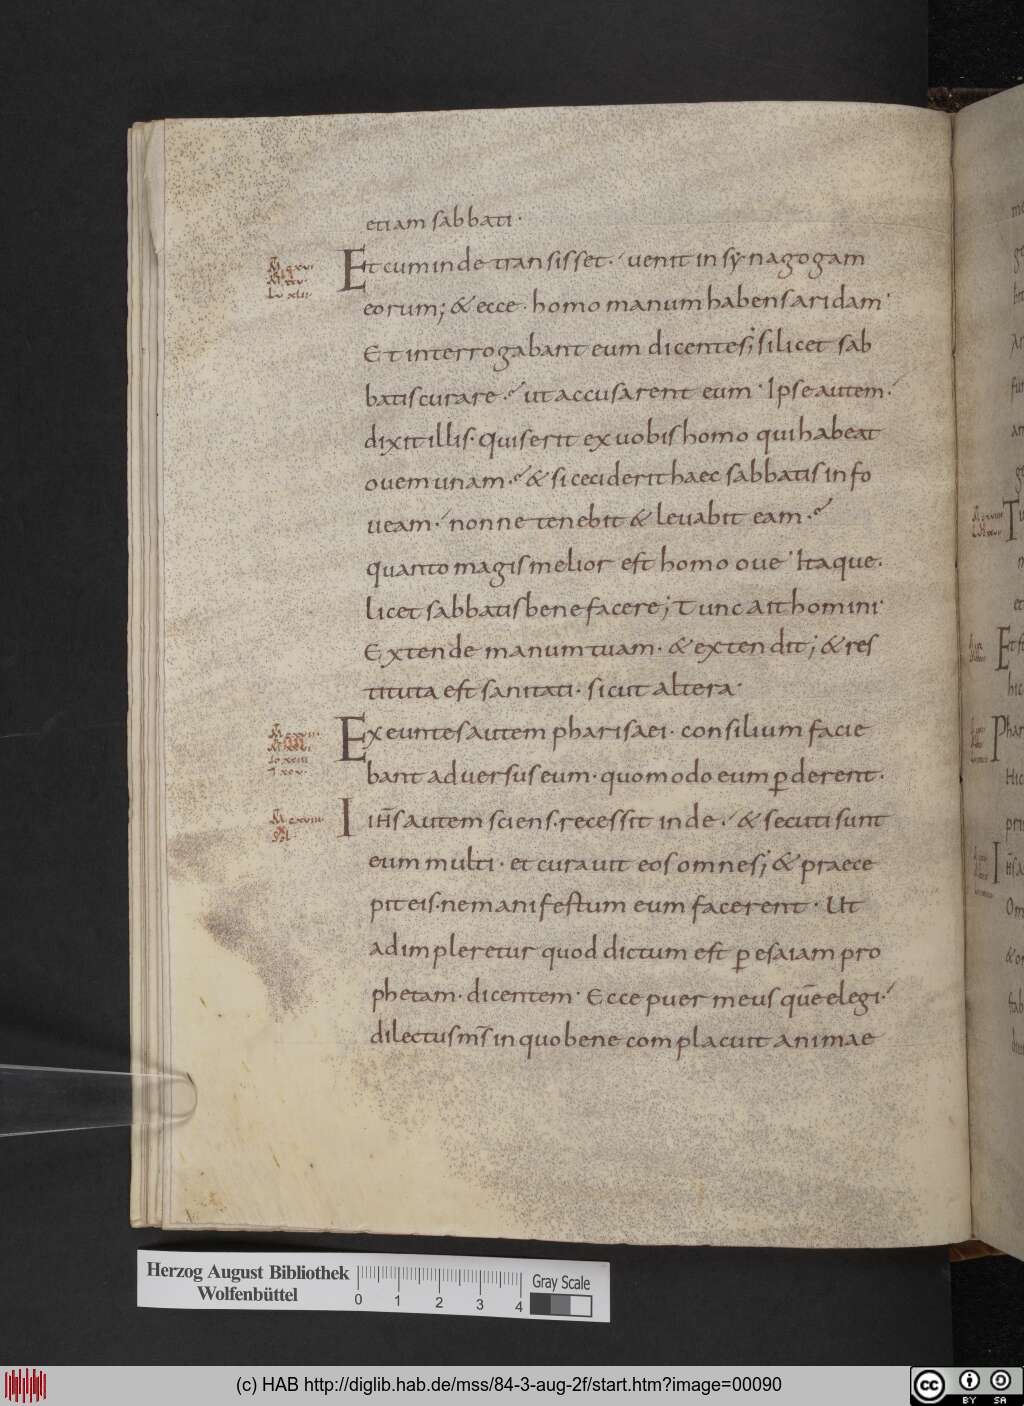 etiam sabbati·
Et cum inde transisset· uenit in synagogam
eorum; & ecce· homo manum habens aridam·
Et interrogabant eum dicentes; si licet sab
batis curare· ut accusarent eum· Ipse autem·
dixit illis· Quis erit ex uobis homo qui habeat
ouem unam· & si ceciderit haec sabbatis in fo
ueam· nonne tenebit & leuabit eam·
quanto magis melior est homo oue· Itaque·
licet sabbatis bene facere; Tunc ait homini·
Extende manum tuam· & extendit; & res
tituta est sanitati· sicut altera·
Exeuntes autem pharisaei· consilium facie
bant aduersus eum· quomodo eum p̲derent·
I ih̅s autem sciens· recessit inde· & secuti sunt
eum multi· et curauit eos omnes; & praece
pit eis· ne manifestum eum facerent· Ut
adimpleretur quod dictum est p̲ esaiam pro
phetam· dicentem· Ecce puer meus que̅ elegi·
dilectus m̅s in quo bene complacuit animae
Herzog August Bibliothek
Wolfenbüttel
0 1 2 3 4
Gray Scale
(c) HAB http://diglib.hab.de/mss/84-3-aug-2f/start.htm?image=00090
cc BY SA